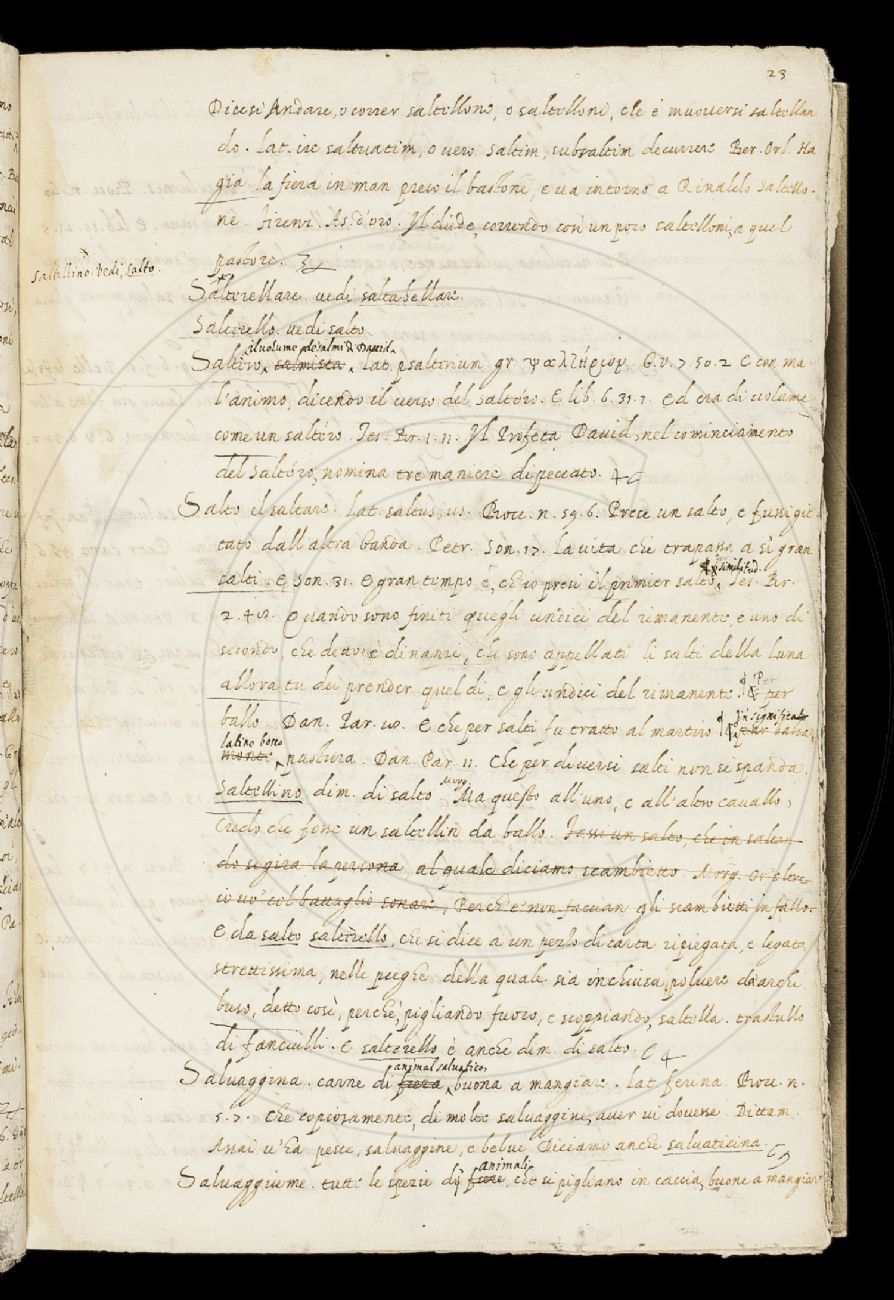 23
Dicesi Andare, o correr saltellone, o saltelloni, che è muoversi saltellan
do. Lat. ire saltuatim, o vero saltim, subsaltim decurrere Ber. Orl. Ha
già la fiera in man preso il bastone, e va intorno a Rinaldo saltello-
ne. Firenz. As. d'oro. Il dude, correndo così un poco saltelloni, a quel
pastore.
Saltellino. Vedi, Salto.
Salterellare. vedi saltabellare.
Salterello. vedi salto.
il volume de' salmi di David.
Saltero, salmista. Lat. psalterium gr. ψαλτήριον. G.V. 7. 50. 2 E con ma
l'animo, dicendo il verso del Saltéro. E lib. 6. 31. 1. Ed era di volume
come un saltéro. Tes. Br. 1. 11. Il Profeta David, nel cominciamento
del Saltéro, nomina tre maniere di peccato.
Salto il saltare. Lat. saltus, us. Bocc. n. 59. 6. Prese un salto, e fussi git
tato dall'altra banda. Petr. Son. 17. La vita che trapassa a sì gran
salti. E Son. 31. E gran tempo è, ch'io presi il primier salto. Tes. Br.
similitud.
2. 48. Quando sono finiti quegli undici del rimanente, e uno di
secondo, che detto è dinanzi, che sono appellati li salti della luna
allora tu dei prender quel dì, e gli undici del rimanente. Per
ballo. Dan. Par. 18. E che per salti fu tratto al martiro In significato
latino bosco
monte, pastura. Dan. Par. 11. Che per diversi salti non si spanda.
Saltellino dim. di salto Morg. Ma questo all'uno, e all'altro cavallo,
Credo che fene un saltellin da ballo. Fassi un salto, che in saltan-
do si gira la persona, al quale diciamo scambietto. Morg. Or oltre
io vo' col battaglio sonare, Perch'e' non facuan gli scambietti in fallo.
E da salto salterello, che si dice a un pezzo di carta ripiegata, e legata
strettissima, nelle pieghe della quale sia inchiusa polvere d'archi
buso, detto così, perchè, pigliando fuoco, e scoppiando, saltella. trastullo
di fanciulli. E salterello è anche dim. di salto.
animal salvatico.
Salvaggina. carne di fiera, buona a mangiare. Lat. ferina. Bocc. n.
5. 7. Che copiosamente, di molte salvaggine, aver vi dovesse. Dittam.
Assai v'ha pesce, salvaggine, e belve Diciamo anche salvaticina.
animali
Salvaggiume. tutte le spezie di fiere, che si pigliano in caccia, buone a mangiare